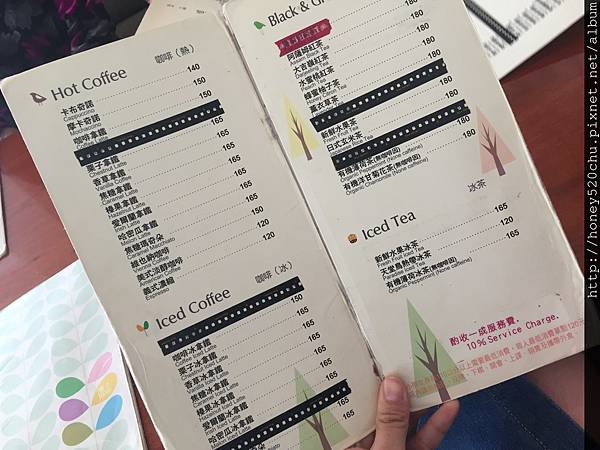 Hot Coffee 咖啡（熱）
卡布奇諾 140
Cappuccino
摩卡奇諾 150
Mochaccino
咖啡拿鐵 150
Coffee Latte
栗子拿鐵 165
Chestnut Latte
香草拿鐵 165
Vanilla Coffee
焦糖拿鐵 165
Caramel Latte
榛果拿鐵 165
Hazelnut Latte
愛爾蘭拿鐵 165
Irish Latte
哈密瓜拿鐵 165
Melon Latte
焦糖瑪奇朵 165
Caramel Macchiato
維也納咖啡 150
Vienna Coffee
美式淳醇咖啡 120
American Coffee
義式濃縮 120
Espresso
Iced Coffee 咖啡（冰）
咖啡冰拿鐵 150
Coffee Iced Latte
栗子冰拿鐵 165
香草冰拿鐵 165
焦糖冰拿鐵 165
榛果冰拿鐵 165
愛爾蘭冰拿鐵 165
哈密瓜冰拿鐵 165
Melon Iced Latte
Black & G
阿薩姆紅茶 180
Assam Black Tea
大吉嶺紅茶 180
Darjeeling Tea
水蜜桃紅茶 180
Peach Tea
蜂蜜柚子茶 180
Honey Citron Tea
薰衣草茶 180
新鮮水果茶 180
Fresh Fruit Tea
日式玄米茶 180
有機薄荷茶(無咖啡因) 180
Organic Peppermint (None caffeine)
有機洋甘菊花茶(無咖啡因) 180
Organic Chamomile (None caffeine)
冰茶
Iced Tea
新鮮水果冰茶 120
Fresh Fruit Iced Tea
天堂鳥熱帶冰茶 165
Paradise Iced Tea
有機薄荷冰茶(無咖啡因) 165
Organic Peppermint (None caffeine)
酌收一成服務費.
10% Service Charge.
http://honey520chu.pixnet.net/album